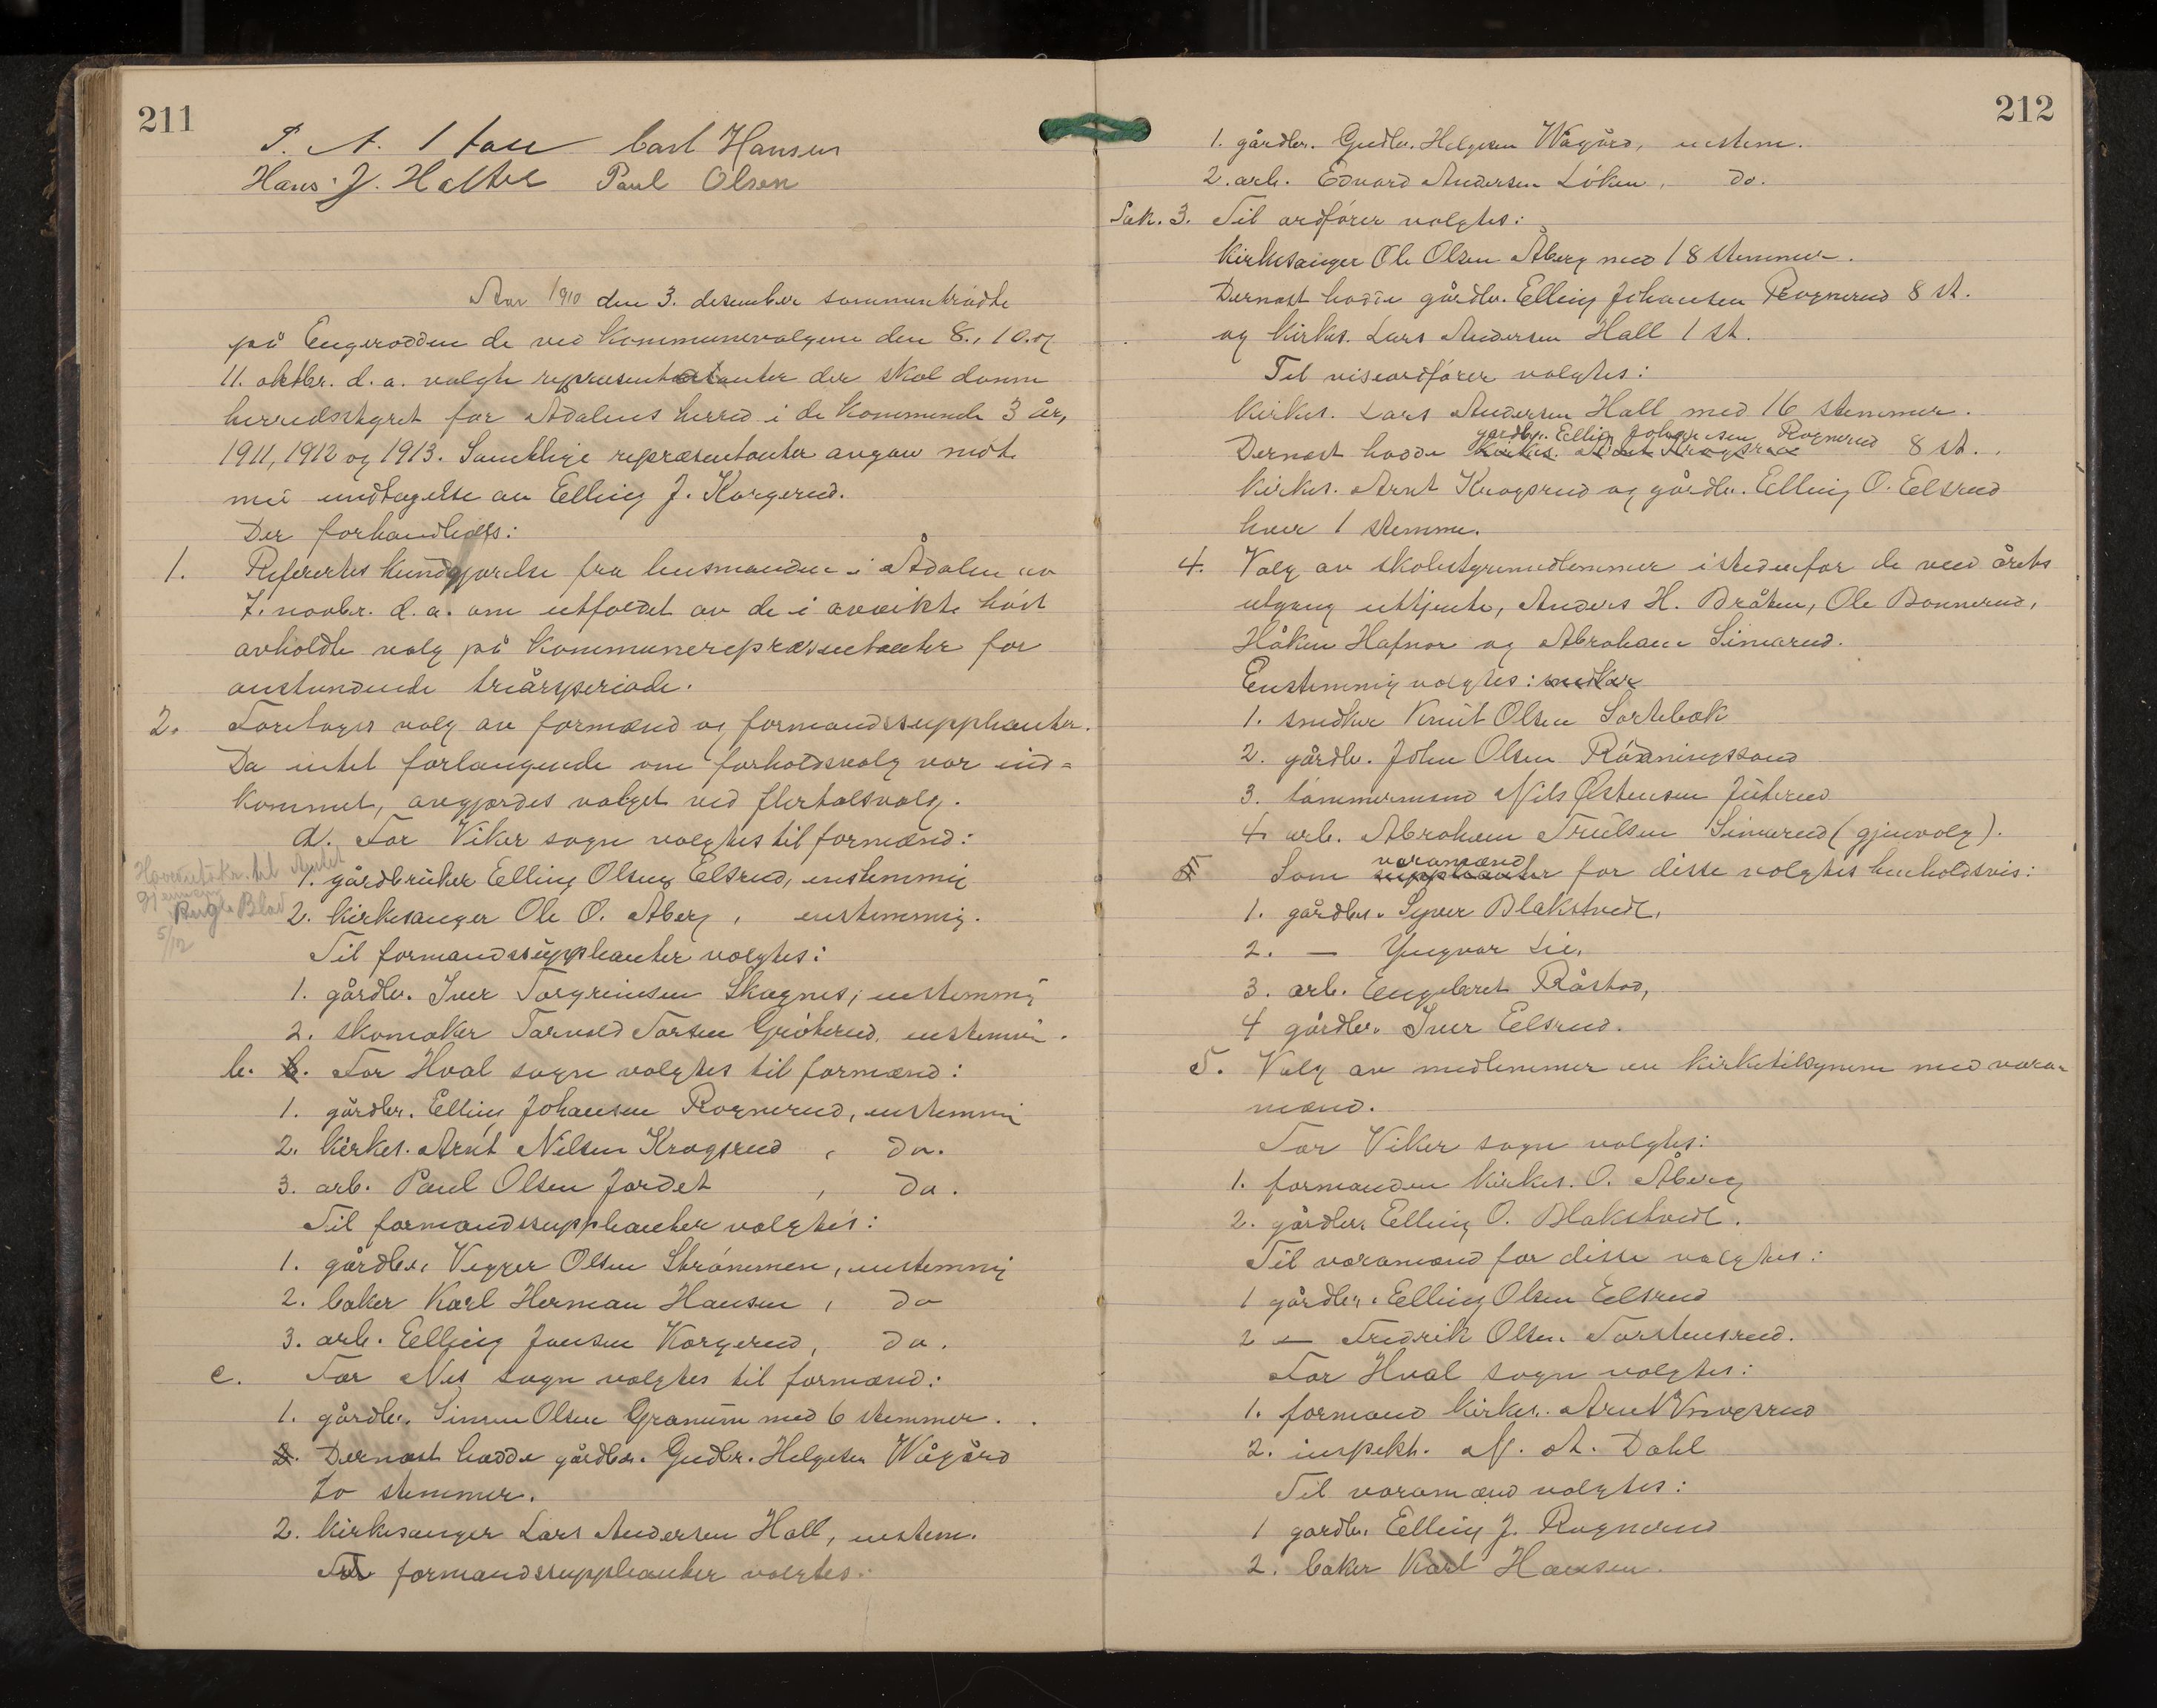 211
Carl Hansen
Hans J. Halter Paul Olsen
Aar 1910 den 3. desember sammentrådte
på Engerodden de ved kommunevalgene den 8., 10. og
11. oktbr. d.a. valgte repræsentanter der skal danne
herredsstyret for Ådalens herred i de kommende 3 år,
1911, 1912 og 1913. Samtlige repræsentanter avgav møte
med undtagelse av Elling J. Korgerud.
Der forhandledes:
1. Refertes kundgjørelse fra lensmanden i Ådalen av
7. novbr. d.a. om utfaldet av de i avvikte høst
avholdte valg på kommunerepræsentanter for
anstundende treårsperiode.
2. Foretages valg av formænd og formandssuppleanter.
Da intet forlangende om forholdsvalg var ind-
kommet, avgjordes valget ved flertalsvalg.
a. For Viker sogn valgtes til formænd:
1. gårdbruker Elling Olsen Elsrud, enstemmig
2. kirkesanger Ole O. Aberg, enstemmig.
til Amtet
Gjennem
Ringr. Blad
5/12
Til formandssuppleanter valgtes:
1. gårdbr. Iver Torgrimsen Skagnes, enstemmig
2. skomaker Tarald Larsen enstemmig.
b. b. For Hval sogn valgtes til formænd:
1. gårdbr. Elling Johansen Rognerud, enstemmig
2. kirkes. Arnt Nilsen Krogsrud, do.
3. arb. Paul Olsen Jordet, do.
Til formandssuppleanter valgtes:
1. gårdbr. Vegger Olsen Strømmen, enstemmig
2. baker Karl Herman Hansen, do
3. arb. Elling Jansen Korgerud, do.
c. For Nes sogn valgtes til formænd:
1. gårdbr. Simen Olsen Granum med 6 stemmer.
2. Dernæst hadde gårdbr. Gudbr. Helgesen Wågård
to stemmer.
2. kirkesanger Lars Andersen Hall, enstem.
Til formandssuppleanter valgtes:
212
1. gårdbr. Gudbr. Helgesen Wågård, enstem.
2. arb. Edvard Andersen Løken, do.
Sak. 3. Til ordfører valgtes:
Kirkesanger Ole Olsen Åberg med 18 stemmer.
Dernæst hadde gårdbr. Elling Johansen Rognerud 8 st.
og kirkes. Lars Andersen Hall 1 st.
Til viseordfører valgtes:
Kirkes. Lars Andersen Hall med 16 stemmer.
gårdbr. Elling Johansen Rognerud
Dernæst hadde kirkes. Arnt Krogsrud 8 st.
kirkes. Arnt Krogsrud og gårdbr. Elling O. Eelsrud
hver 1 stemme.
4. Valg av skolestyremedlemmer istedenfor de ved årets
utgang uttjente, Anders H. Bråten, Ole Bonnerud,
Håken Hafnor og Abraham Simerud.
Enstemmig valgtes: snedker
1. snedker Knut Olsen Sortebæk
2. gårdbr. John Olsen Rønningssand
3. tømmermand Nils Østensen Juterud
4. arb. Abraham Trulsen Simerud (gjenvalg).
varamænd
5 Som suppleanter for disse valgtes henholdsvis:
1. gårdbr. Syver Blakstvedt,
2. — Yngvar Lie,
3. arb. Engebret Råstad,
4 gårdbr. Iver Eelsrud.
5. Valg av medlemmer av kirketilsynene med vara-
mænd.
For Viker sogn valgtes:
1. formanden kirkes. O. Åberg
2. gårdbr. Elling O. Blakstvedt.
Til varamænd for disse valgtes:
1 gårdbr. Elling Olsen Eelsrud
2 — Fredrik Olsen Torstensrud.
For Hval sogn valgtes:
1. formand kirkes. Arnt Krogsrud
2. inspekt. N. A. Dahl
Til varamænd valgtes:
1 gardbr. Elling J. Rognerud
2. baker Karl Hansen.